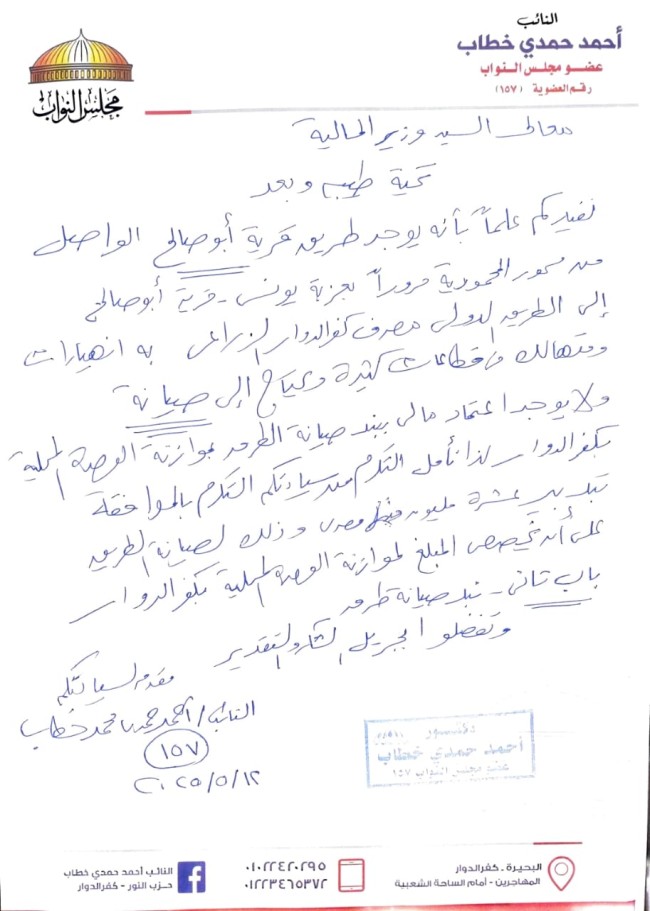 النائب
أحمد حمدي خطاب
عضو مجلس النواب
رقم العضوية (١٥٧)
مجلس النواب
معالى السيد وزير المالية
تحية طيبة وبعد
نفيدكم علماً بأنه يوجد طريق قرية أبو صالح الواصل
من محور المحمودية مروراً بعزبة يونس - قرية أبو صالح
إلى الطريق الدولى مصرف كفر الدوار الزراعى به انهيارات
ومتهالك قطاعات كثيرة ويحتاج إلى صيانة
ولا يوجد اعتماد مالى ببند صيانة الطرق بموازنة الوحدة المحلية
بكفر الدوار لذا نأمل التكرم من سيادتكم التكرم بالموافقة
بتدبير عشرة مليون جنيه مصرى وذلك لصيانة الطريق
على أن يخصص المبلغ لموازنة الوحدة المحلية بكفر الدوار
باب ثانى - بند صيانة طرق
وتفضلوا بجزيل الشكر والتقدير
مقدمه لسيادتكم
النائب / أحمد حمدى محمد خطاب
١٥٧
٢٠٢٥/٥/١٢
دكتور
أحمد حمدي خطاب
عضو مجلس النواب ١٥٧
البحيرة - كفرالدوار
المهاجرين - أمام الساحة الشعبية
٠١٠٢٢٤٢٠٢٩٥
٠١٢٢٣٤٦٥٣٧٢
النائب أحمد حمدي خطاب
حزب النور - كفرالدوار